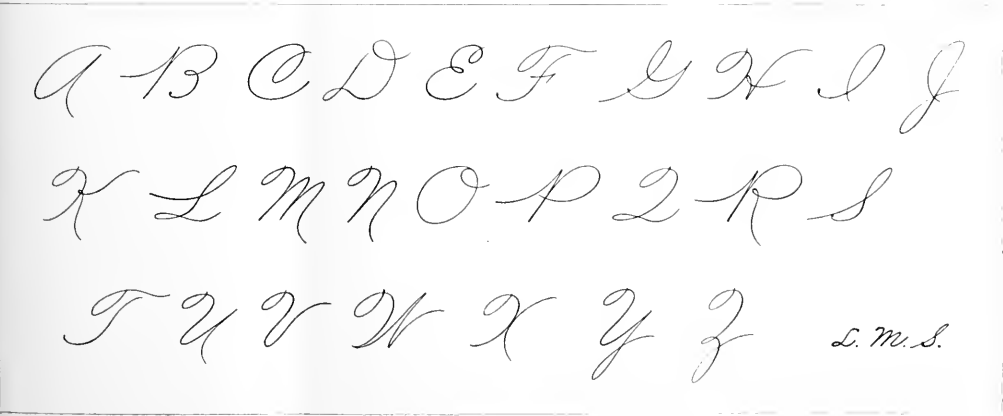 A B C D E F G H I J
K L M N O P Q R S
T U V W X Y Z L. M. S.